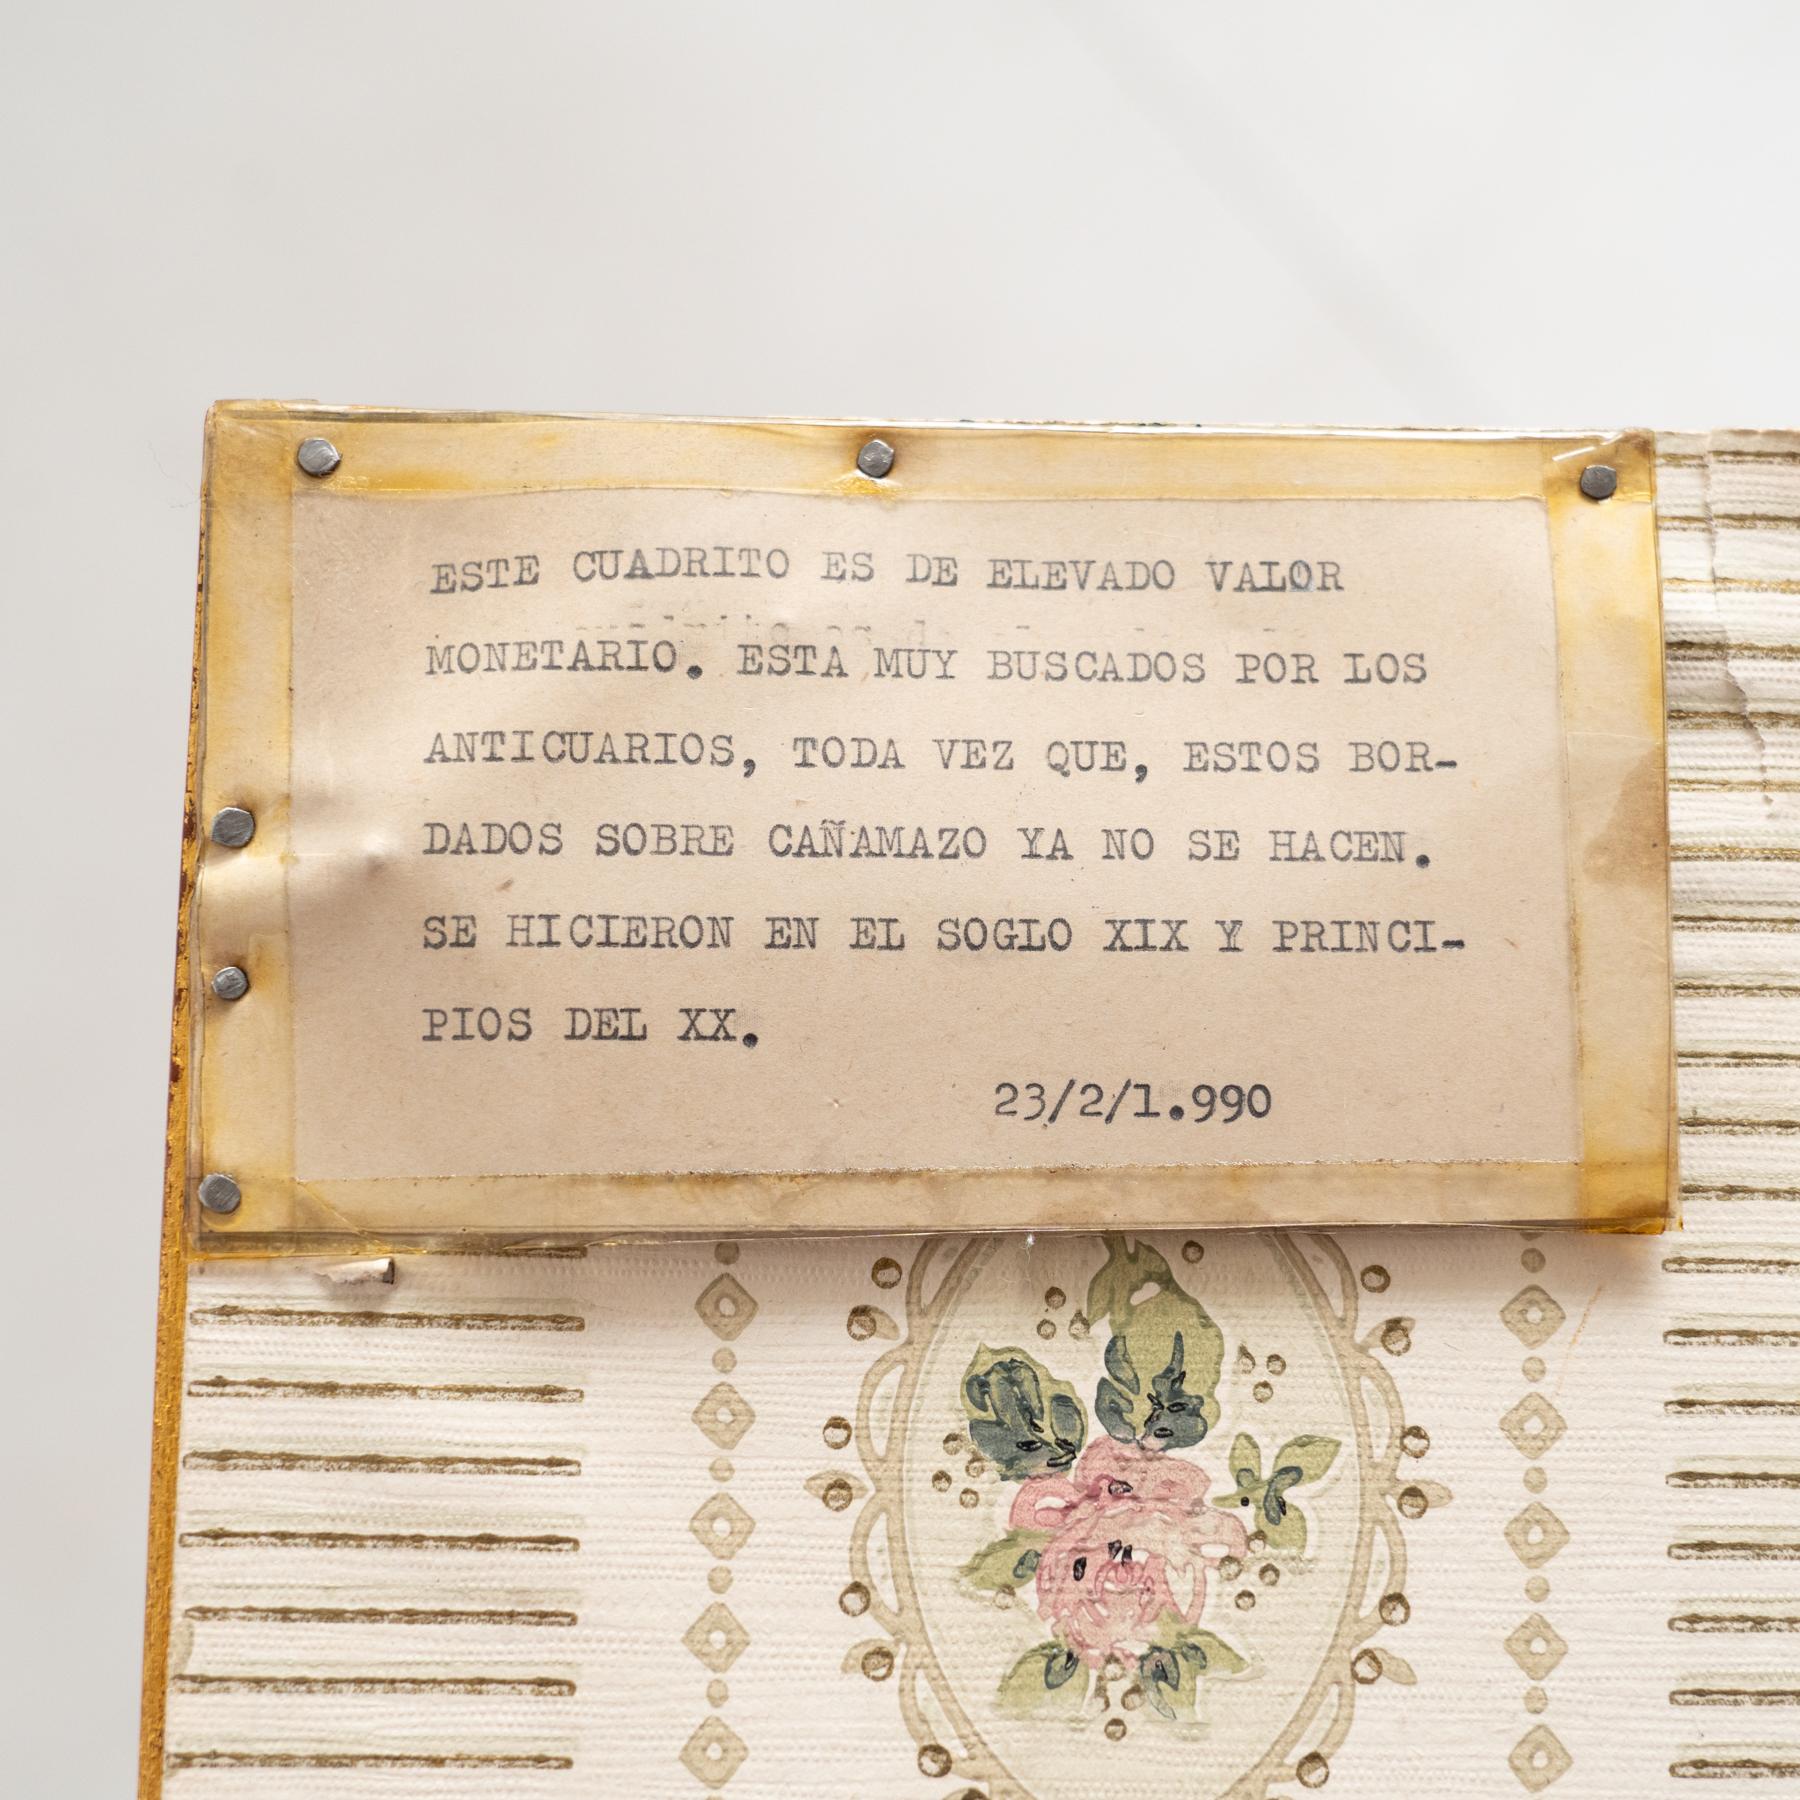 ESTE CUADRITO ES DE ELEVADO VALOR
MONETARIO. ESTA MUY BUSCADOS POR LOS
ANTICUARIOS, TODA VEZ QUE, ESTOS BOR-
DADOS SOBRE CAÑAMAZO YA NO SE HACEN.
SE HICIERON EN EL SOGLO XIX Y PRINCI-
PIOS DEL XX.
23/2/1.990